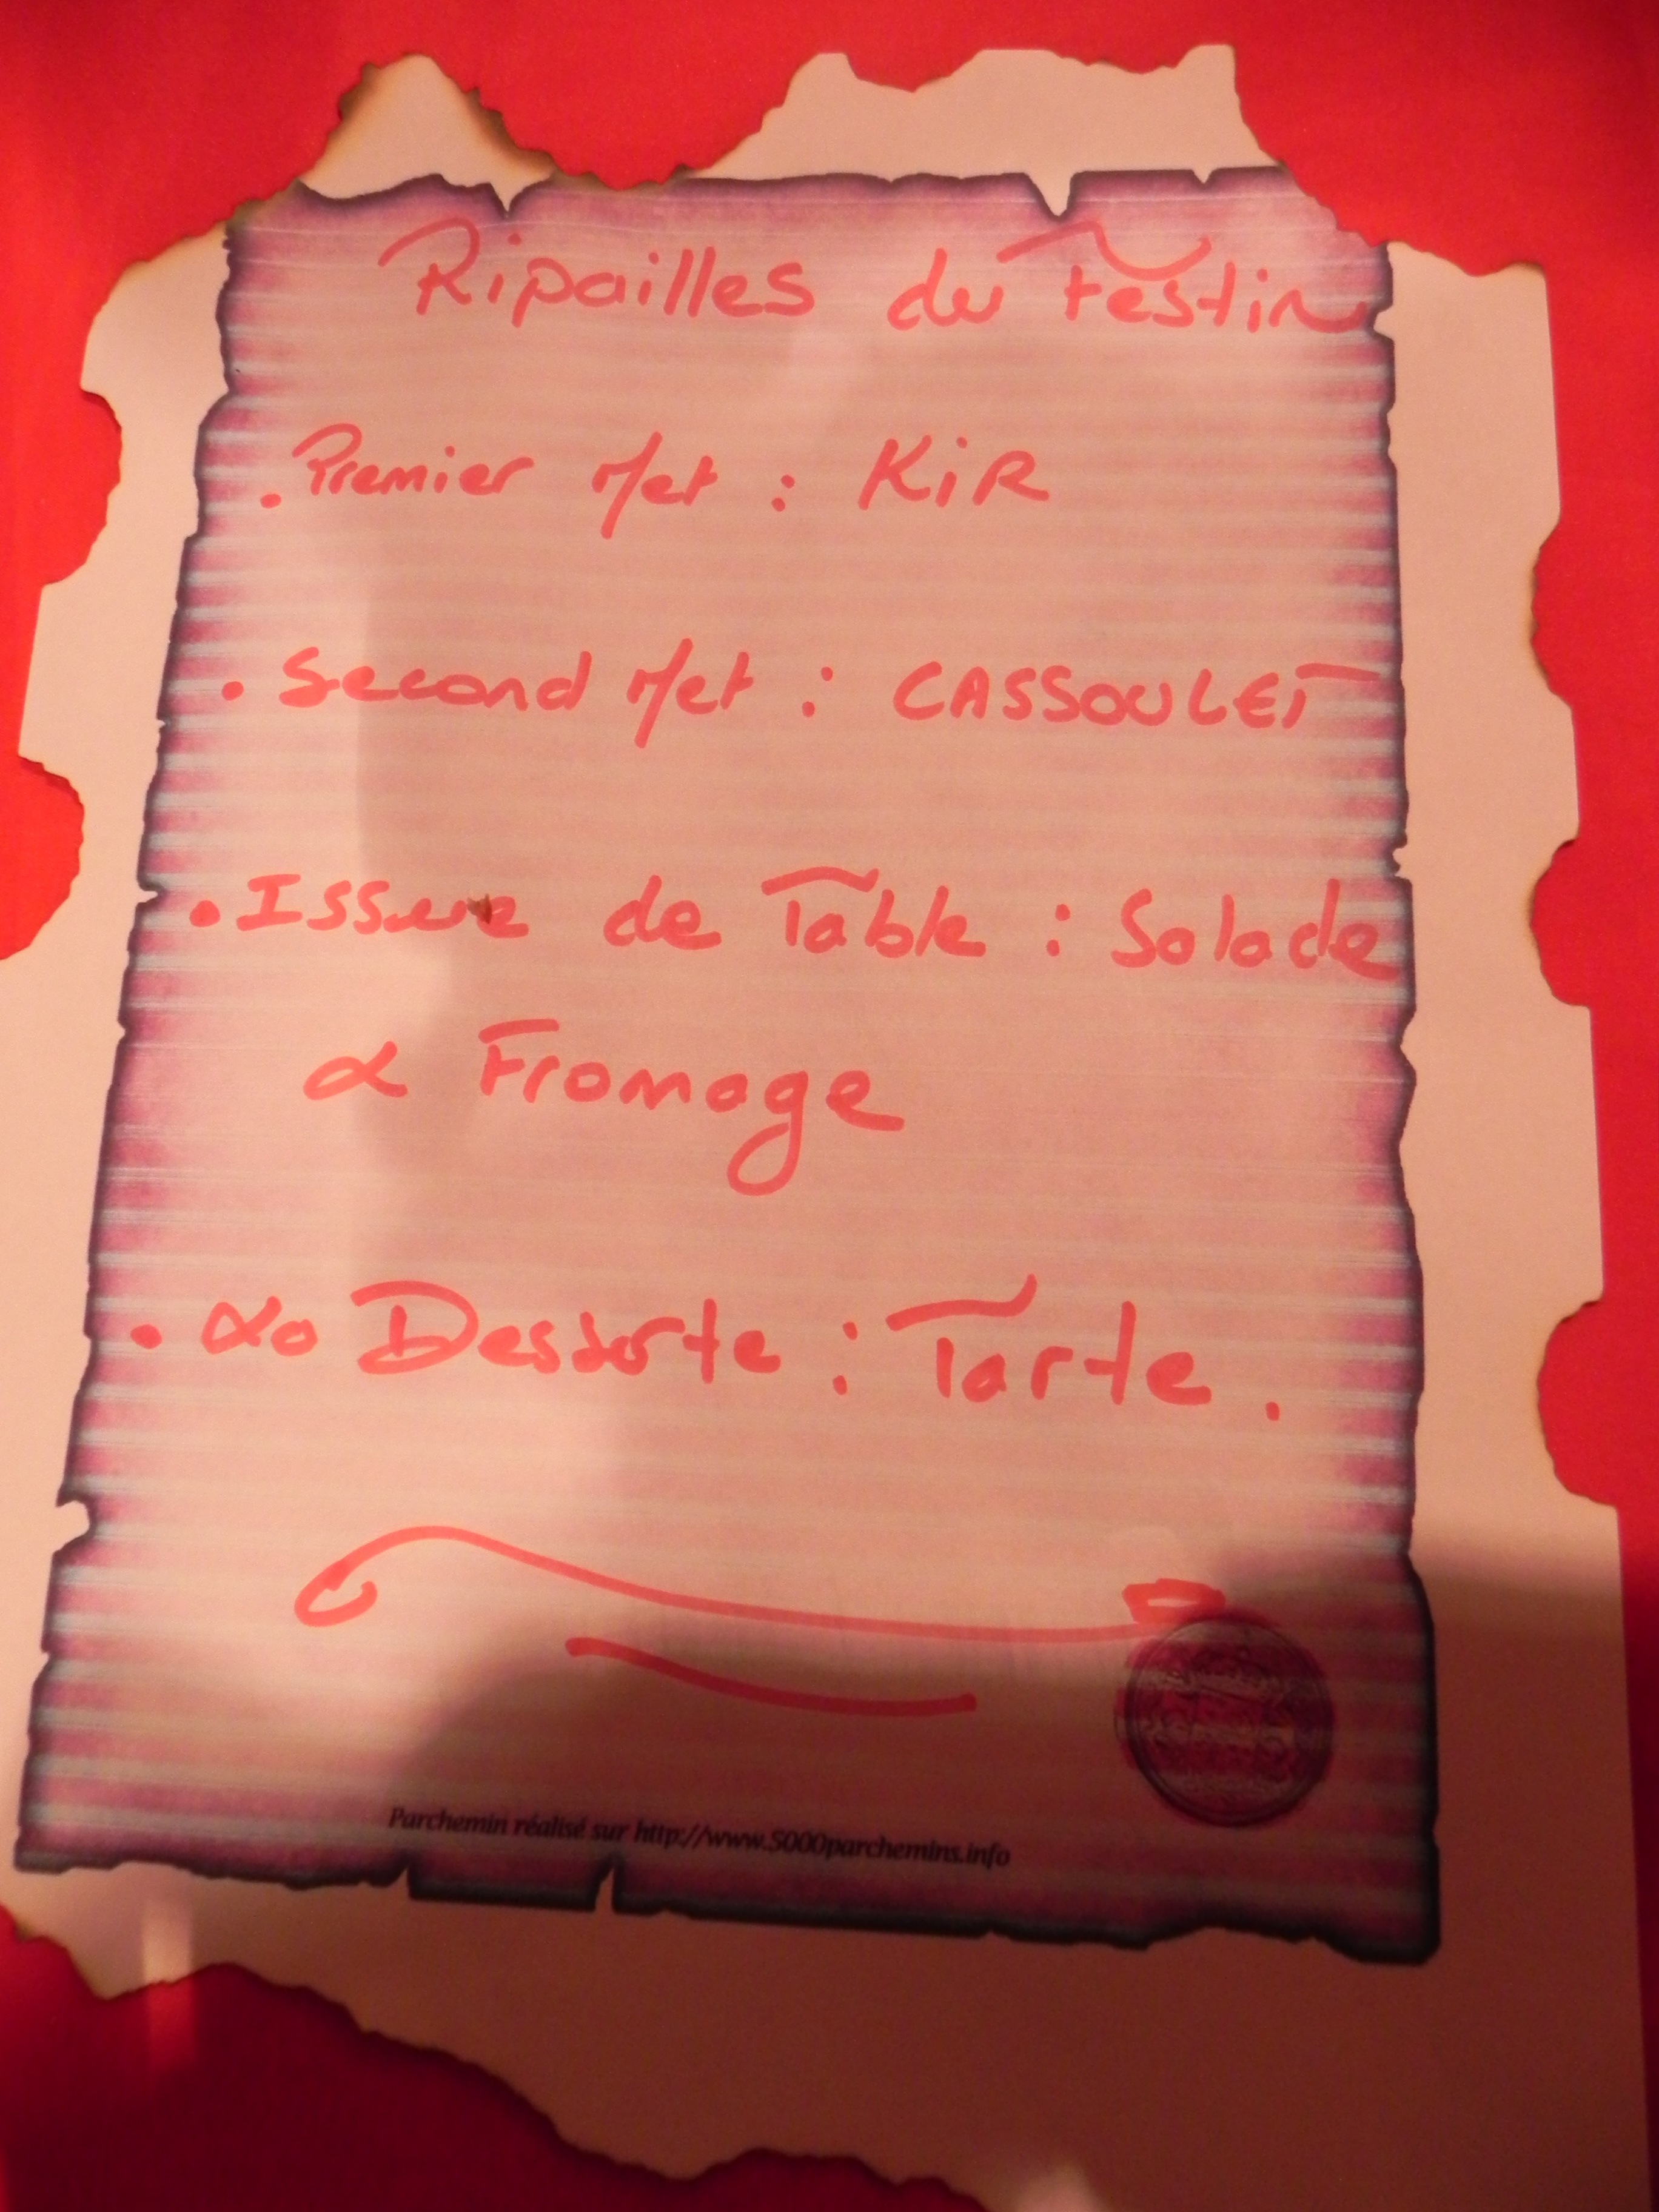 Ripailles du Festin
. Premier Met : KiR
. Second Met : CASSOULET
. Issue de Table : Salade
& Fromage
. La Desserte : Tarte.
Parchemin réalisé sur http://www.5000parchemins.info